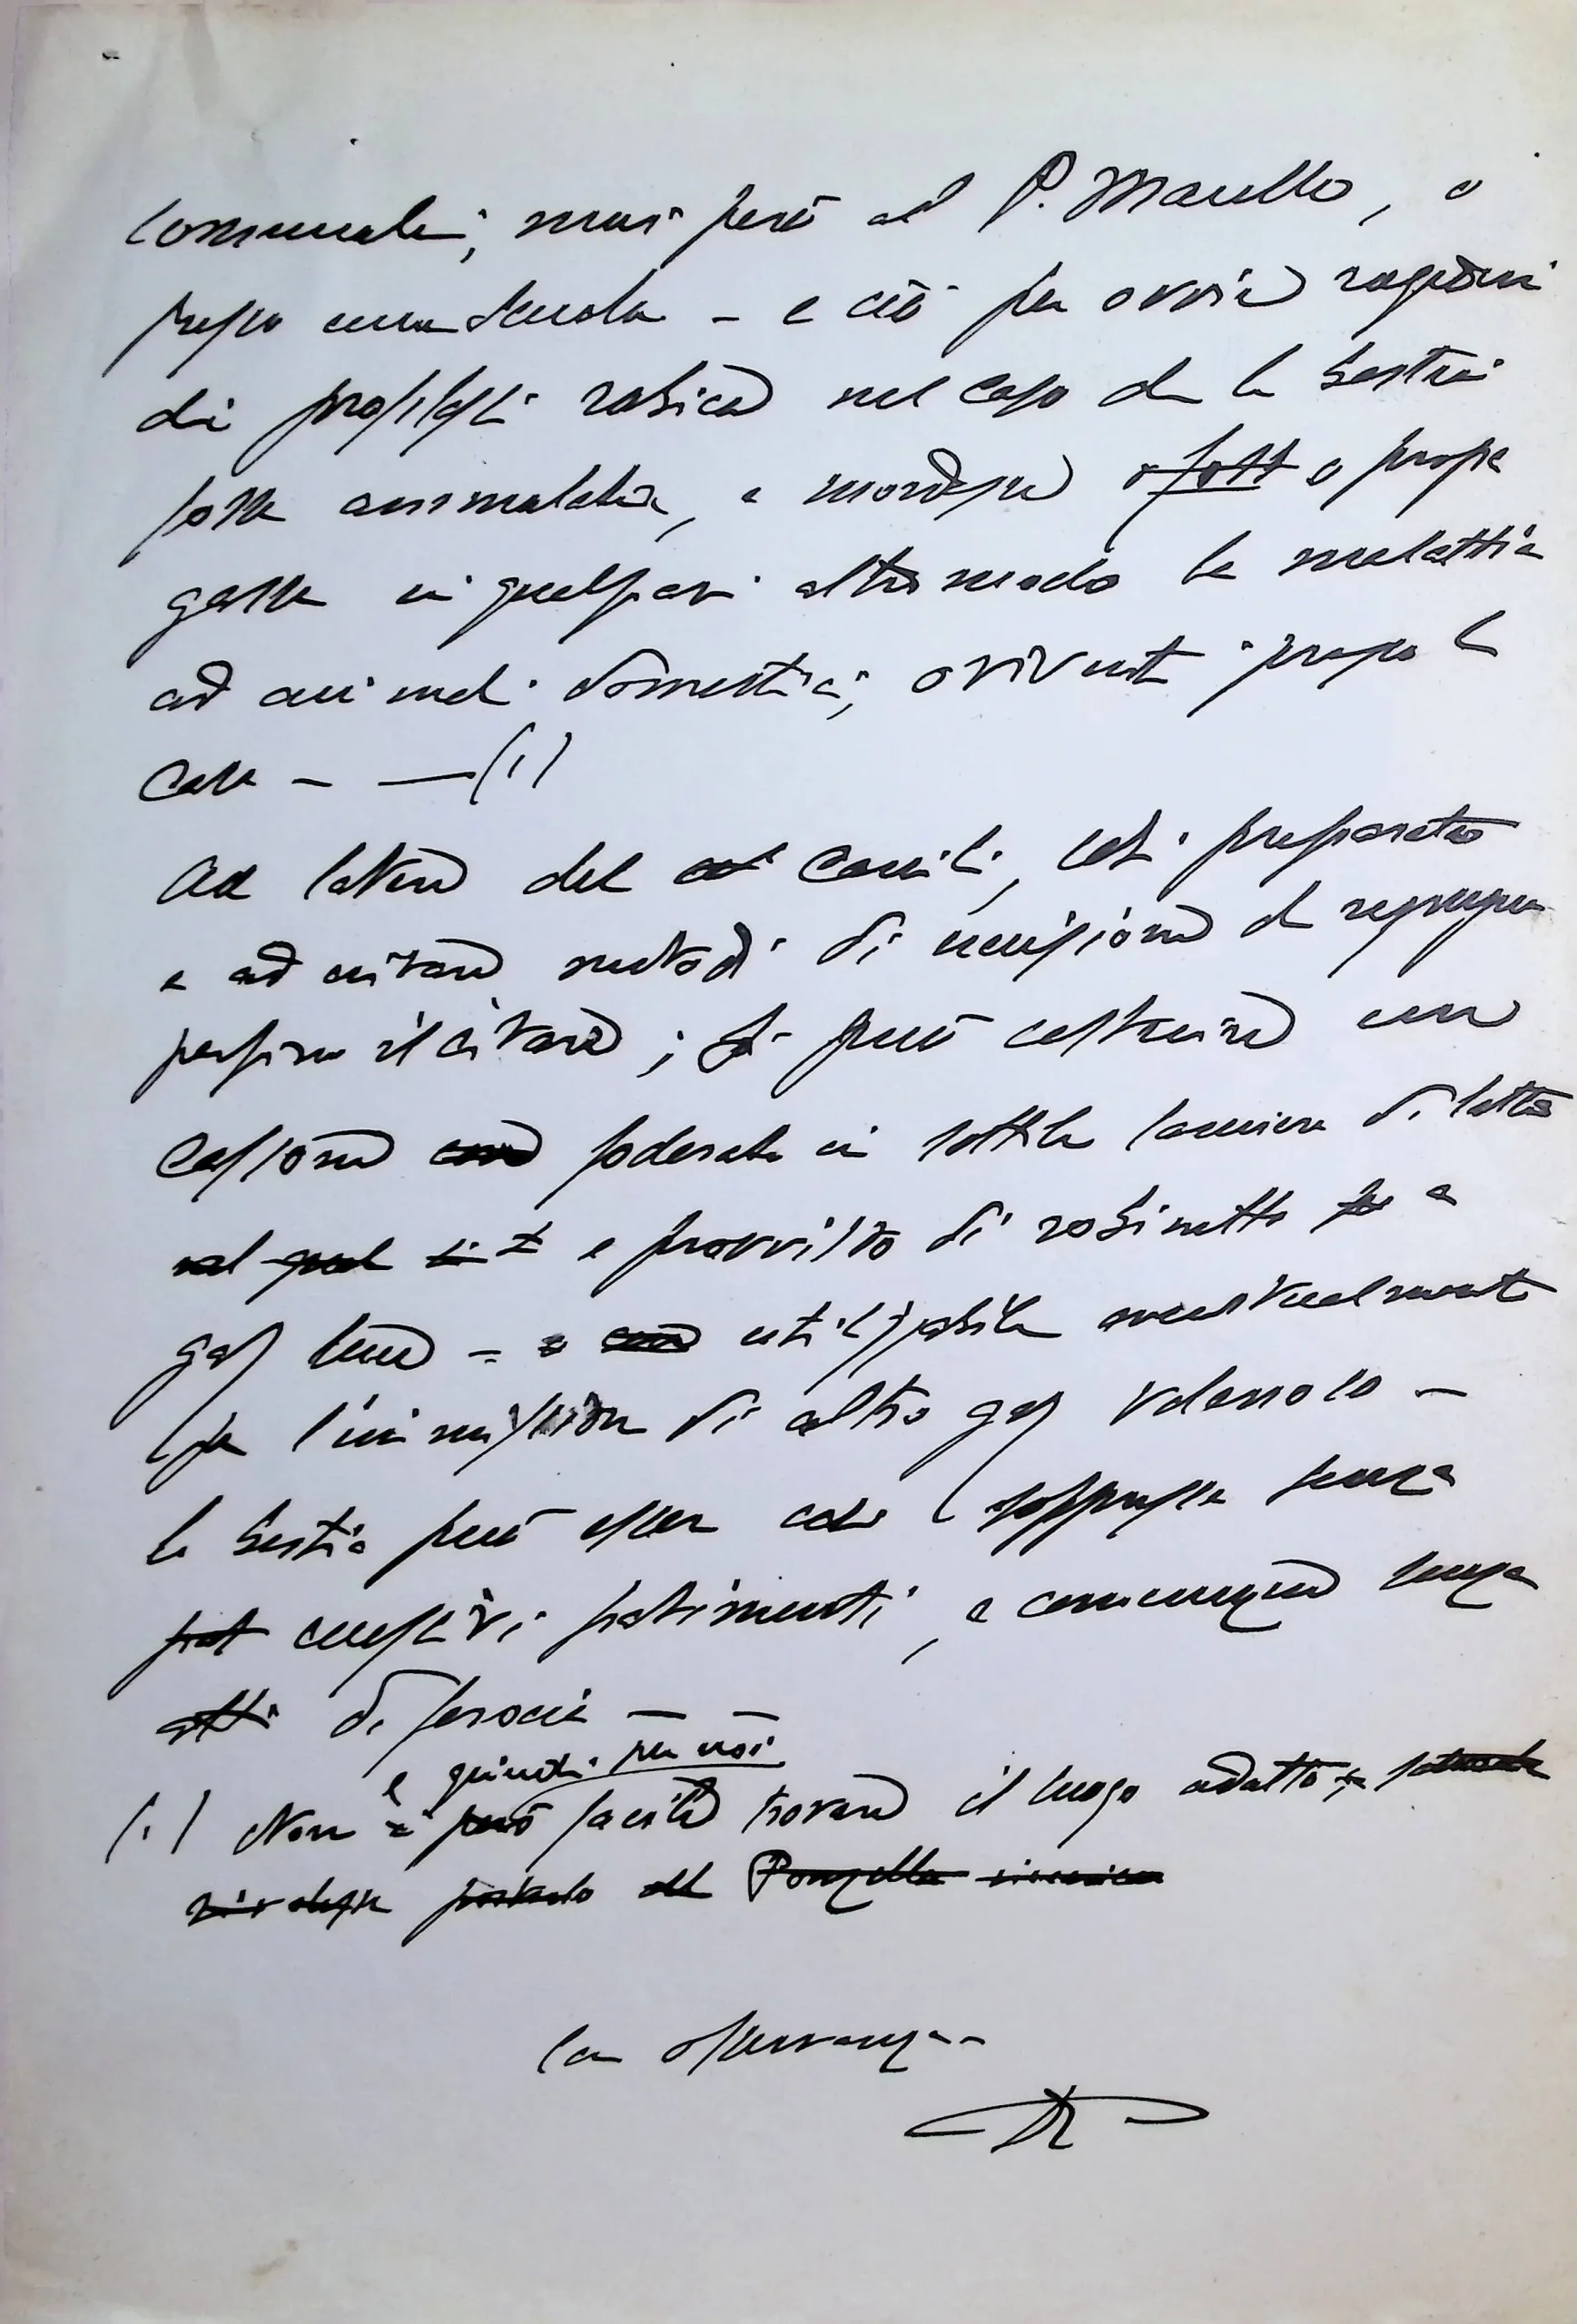 comunale; mai però al P. Macello, o
presso una Scuola - e ciò per ovvie ragioni
di profilassi rabica nel caso che la bestia
fosse ammalata, e mordesse o propa
gasse in qualsiasi altro modo la malattia
ad animali domestici, o viventi presso le
case - — (1)
Ad latere del canile, così preparato
e ad evitare metodi di uccisione che repugna
persino il citare; si può costruire un
cassone foderato in sottile lamiera di latta
e provvisto di robinetto a
gas luce - utilizzabile eventualmente
per l'immissione di altro gas velenoso -
la bestia può esser così soppressa senza
eccessivi patimenti, e comunque senza
atti di ferocia — —
e quindi per voi
(1) Non facile trovare il luogo adatto
rivolgersi Ponzella
Con osservanza